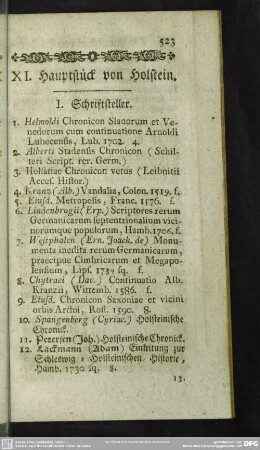 523
XI. Hauptstück von Holstein.
I. Schriftsteller.
1. Helmoldi Chronicon Slauorum et Ve-
nedorum cum continuatione Arnoldi
Lubecensis, Lub. 1702. 4.
2. Alberti Stadensis Chronicon (Schil-
teri Script. rer. Germ.)
3. Holsatiae Chronicon vetus (Leibnitii
Acces. Histor.)
4. Kranz (Alb.) Vandalia, Colon. 1519. f.
5. Eiusd. Metropolis, Franc. 1576. f.
6. Lindenbrogii (Erp.) Scriptores rerum
Germanicarum septentrionalium vici-
norumque populorum, Hamb. 1706. f.
7. Westphalen (Ern. Joach. de) Monu-
menta inedita rerum Germanicarum,
praecipue Cimbricarum et Megapo-
lensium, Lips. 1739 sq. f.
8. Chytraei (Dav.) Continuatio Alb.
Kranzii, Wittemb. 1586. f.
9. Eiusd. Chronicon Saxoniae et vicini
orbis Arctoi, Rost. 1590. 8.
10. Spangenberg (Cyriac.) Holsteinische
Chronick.
11. Petersen (Joh.) Holsteinische Chronick.
12. Lackmann (Adam) Einleitung zur
Schleswig-Holsteinischen Historie,
Hamb. 1730 sq. 8.
13.